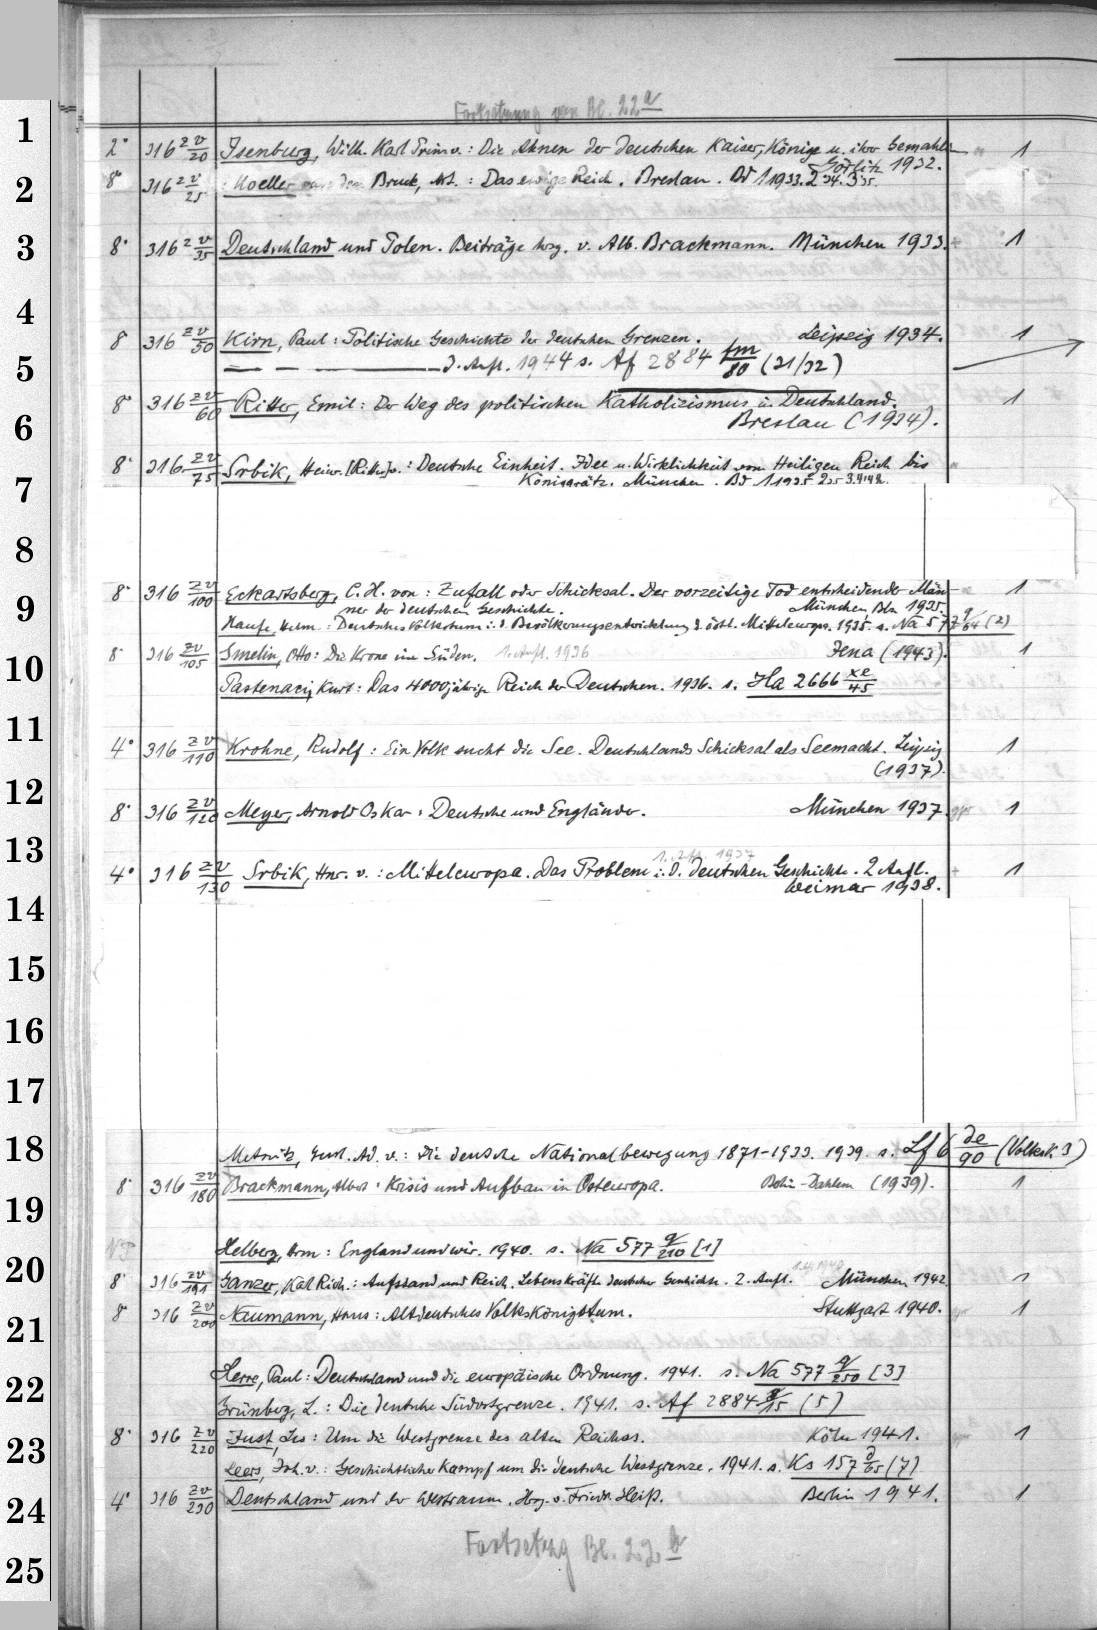 Fortsetzung von Bl. 22a
1
2° 316 zv/20 Isenburg, Wilh. Karl Prinz v.: Die Ahnen der deutschen Kaiser, Könige u. ihrer Gemahln 1
Görlitz 1932.
2
8° 316 zv/25 : Moeller van den Bruck, Art.: Das ewige Reich. Breslau. Bd 1 1933. 2 34. 3 35.
3
8° 316 zv/35 Deutschland und Polen. Beiträge hrsg. v. Alb. Brackmann. München 1933. + 1
4
8 316 zv/50 Kirn, Paul: Politische Geschichte der deutschen Grenzen. Leipzig 1934. 1
5
— — — 3. Aufl. 1944 s. Af 2884 fm/80 (31/32)
8° 316 zv/60 Ritter, Emil: Der Weg des politischen Katholizismus in Deutschland. 1
6
Breslau (1934).
8° 316 zv/75 Srbik, Heinr. [Ritter] v.: Deutsche Einheit. Idee u. Wirklichkeit vom Heiligen Reich bis
7
Königgrätz. München. Bd 1 1935 2 35 3. 4 1942.
8
8° 316 zv/100 Eckartsberg, C. H. von: Zufall oder Schicksal. Der vorzeitige Tod entscheidender Män- 1
9
ner der deutschen Geschichte. München, Bln 1935.
Haufe, Helm.: Deutsches Volkstum i. d. Bevölkerungsentwicklung d. östl. Mitteleurop. 1935. s. Na 577 q/64 (2)
10
8° 316 zv/105 Gmelin, Otto: Die Krone im Süden. 1. Aufl. 1936 Jena (1943). 1
Pastenaci, Kurt: Das 4000jährige Reich der Deutschen. 1936. s. Ha 2666 xe/45
11
4° 316 zv/110 Krohne, Rudolf: Ein Volk sucht die See. Deutschlands Schicksal als Seemacht. Leipzig 1
(1937).
12
8° 316 zv/120 Meyer, Arnold Oskar: Deutsche und Engländer. München 1937 1
13
1. Aufl. 1937
4° 316 zv/130 Srbik, Hnr. v.: Mitteleuropa. Das Problem i. d. deutschen Geschichte. 2 Aufl. + 1
Weimar 1938.
14
15
16
17
18
Metnitz, Gust. Ad. v.: Die deutsche Nationalbewegung 1871-1933. 1939. s. Lf 6 de/90 (Volksk. 3)
8° 316 zv/180 Brackmann, Albert: Krisis und Aufbau in Osteuropa. Berlin-Dahlem (1939). 1
19
Helberg, Arm: England und wir. 1940. s. Na 577 q/210 [1]
20
8° 316 zv/191 Ganzer, Karl Rich.: Aufstand und Reich. Lebenskräfte deutscher Geschichte. 2. Aufl. München 1942. 1
8° 316 zv/200 Naumann, Hans: Altdeutsches Volkskönigtum. Stuttgart 1940. 1
21
Herre, Paul: Deutschland und die europäische Ordnung. 1941. s. Na 577 q/250 [3]
22
Grünberg, L.: Die deutsche Südostgrenze. 1941. s. Af 2884 g/15 (5)
8° 316 zv/220 Just, Leo: Um die Westgrenze des alten Reiches. Köln 1941. 1
23
Leers, Joh. v.: Geschichtlicher Kampf um die deutsche Westgrenze. 1941. s. Ks 157 d/65 (7)
4° 316 zv/230 Deutschland und der Westraum. Hrsg. v. Friedr. Heiß. Berlin 1941. 1
24
Fortsetzg Bl. 22 b
25